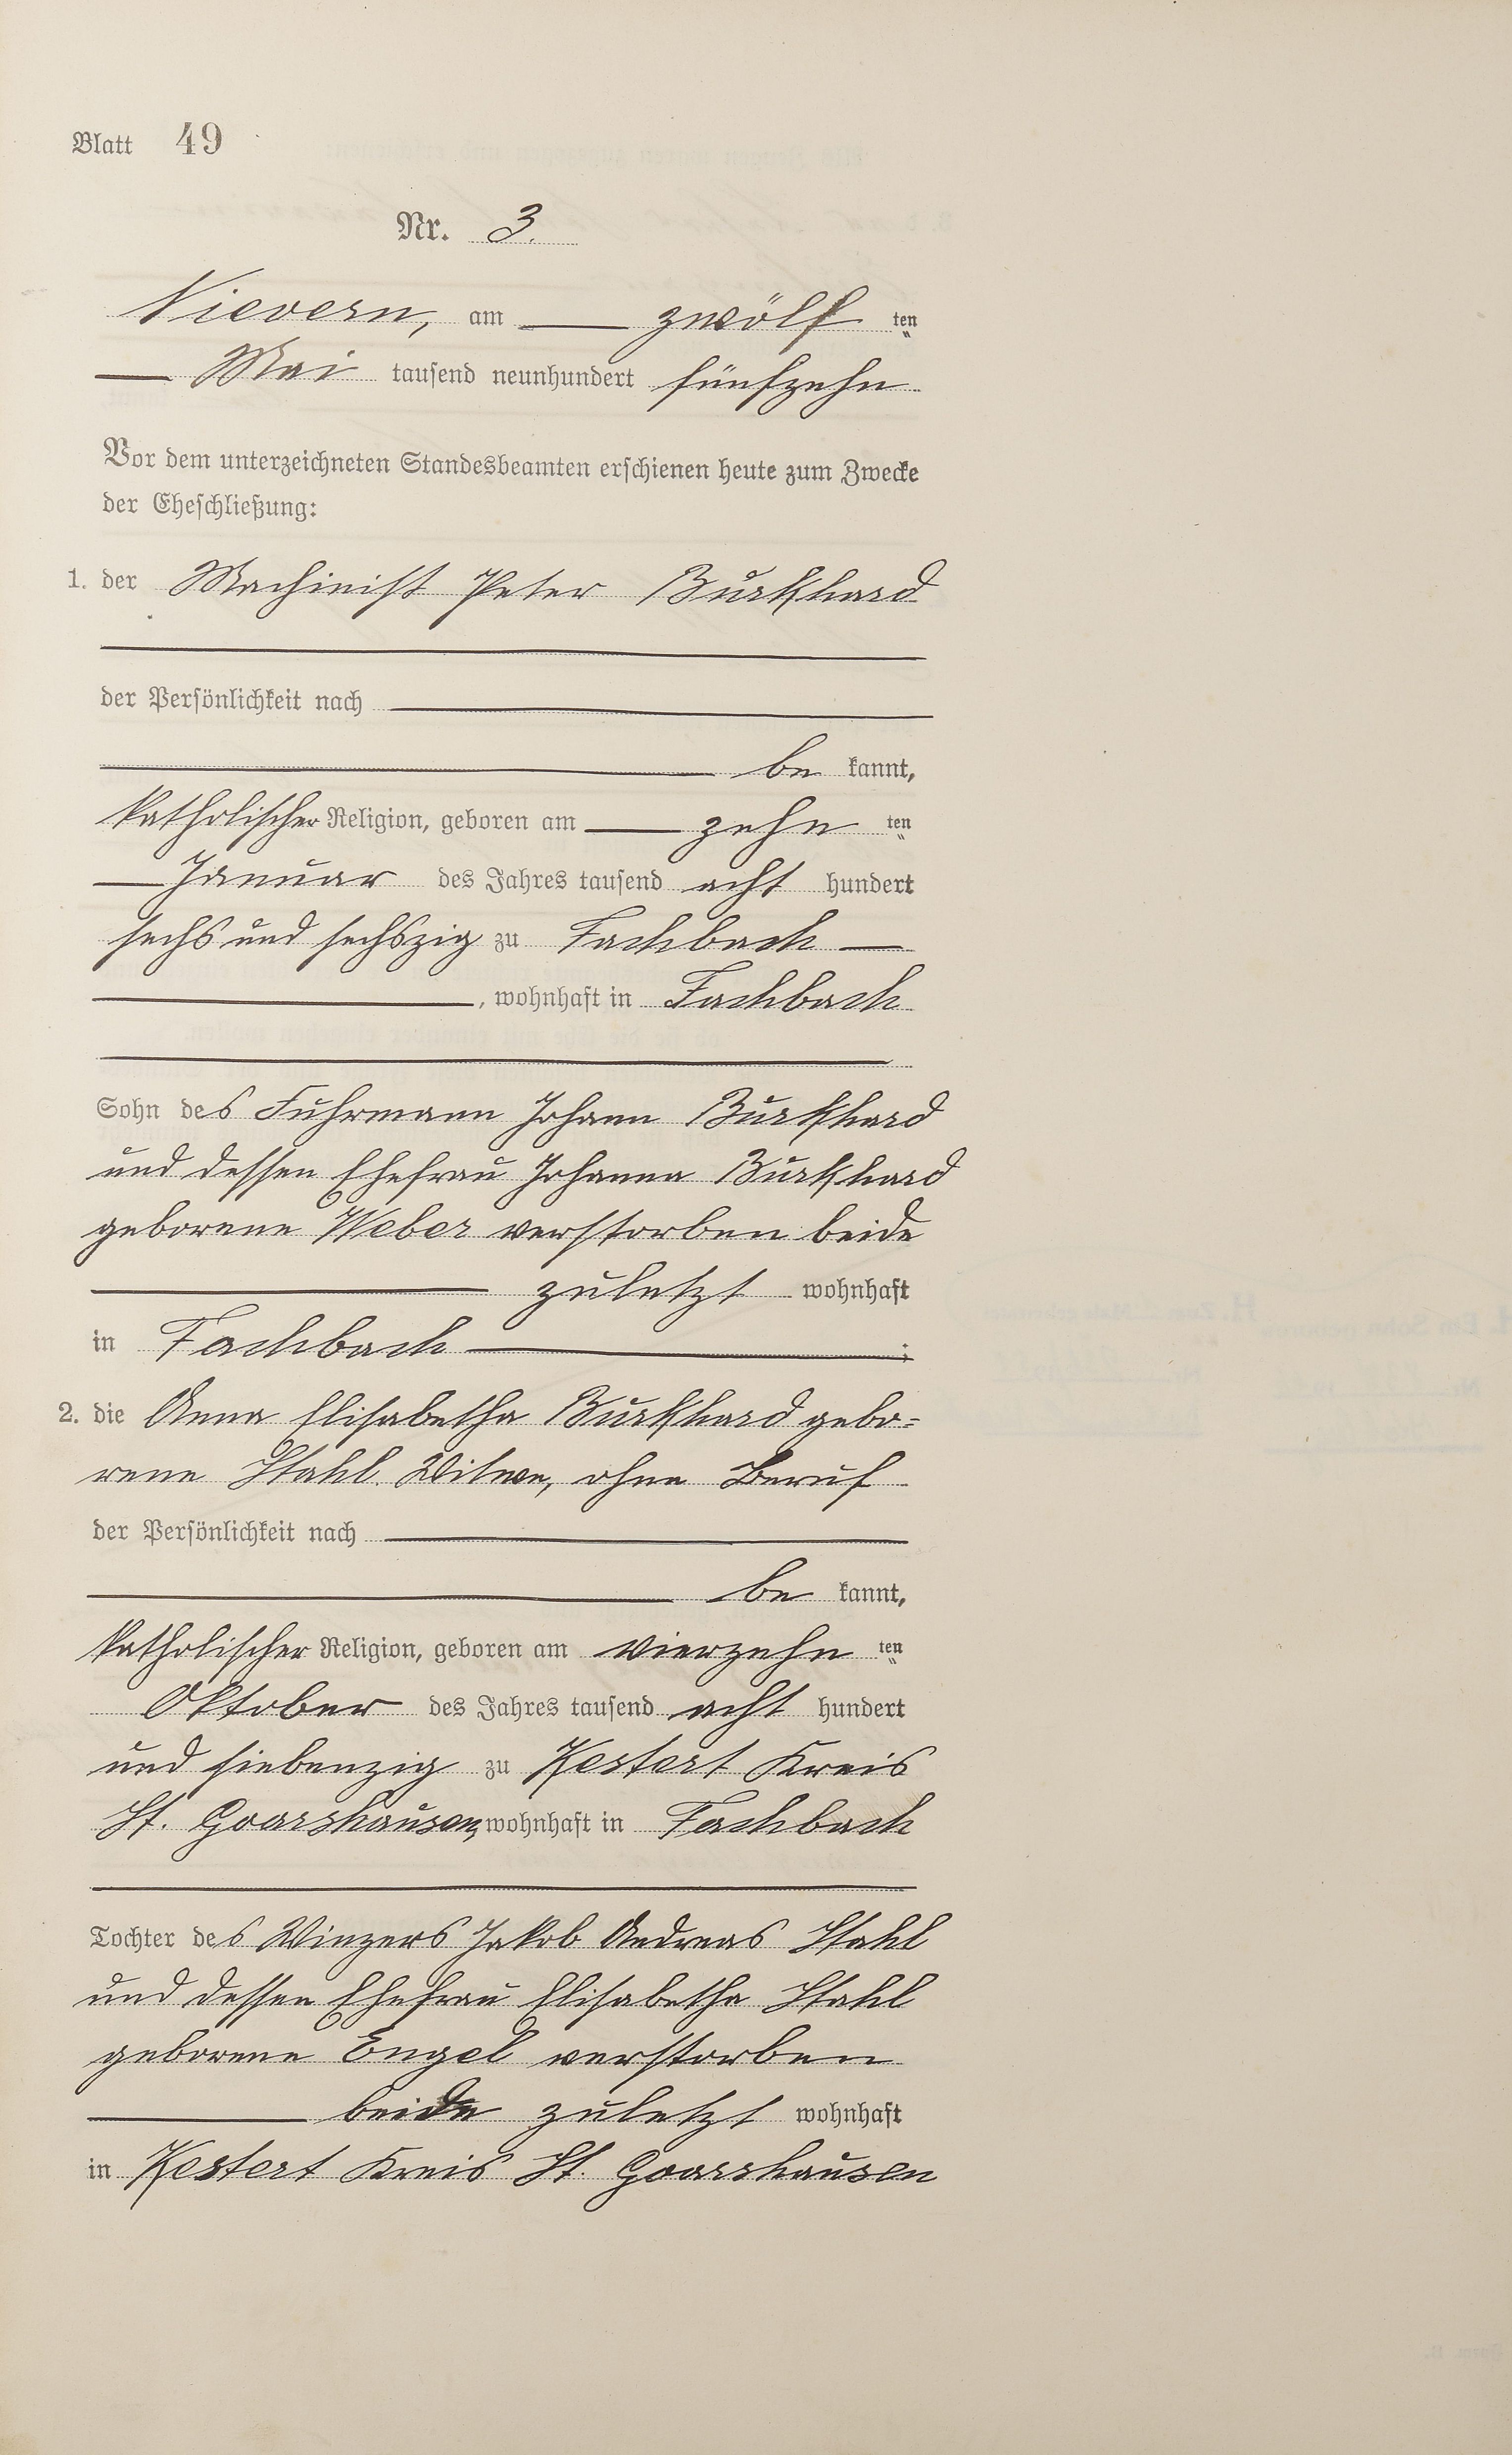 Blatt 49
Nr. 3.
Nievern, am zwölf ten
Mai tausend neunhundert fünfzehn
Vor dem unterzeichneten Standesbeamten erschienen heute zum Zwecke
der Eheschließung:
1. der Machinist Peter Burkhard
der Persönlichkeit nach
be kannt,
katholischer Religion, geboren am zehn ten
Januar des Jahres tausend acht hundert
sechs und sechszig zu Fachbach
, wohnhaft in Fachbach
Sohn des Fuhrmann Johann Burkhard
und dessen Ehefrau Johanna Burkhard
geborene Weber verstorben beide
zuletzt wohnhaft
in Fachbach ;
2. die Anna Elisabetha Burkhard gebo=
rene Stahl. Witwe, ohne Beruf
der Persönlichkeit nach
be kannt,
katholischer Religion, geboren am vierzehn ten
Oktober des Jahres tausend acht hundert
und siebenzig zu Kestert Kreis
St. Goarshausen, wohnhaft in Fachbach
Tochter des Winzers Jakob Andreas Stahl
und dessen Ehefrau Elisabetha Stahl
geborene Engel verstorben
beide zuletzt wohnhaft
in Kestert Kreis St. Goarshausen